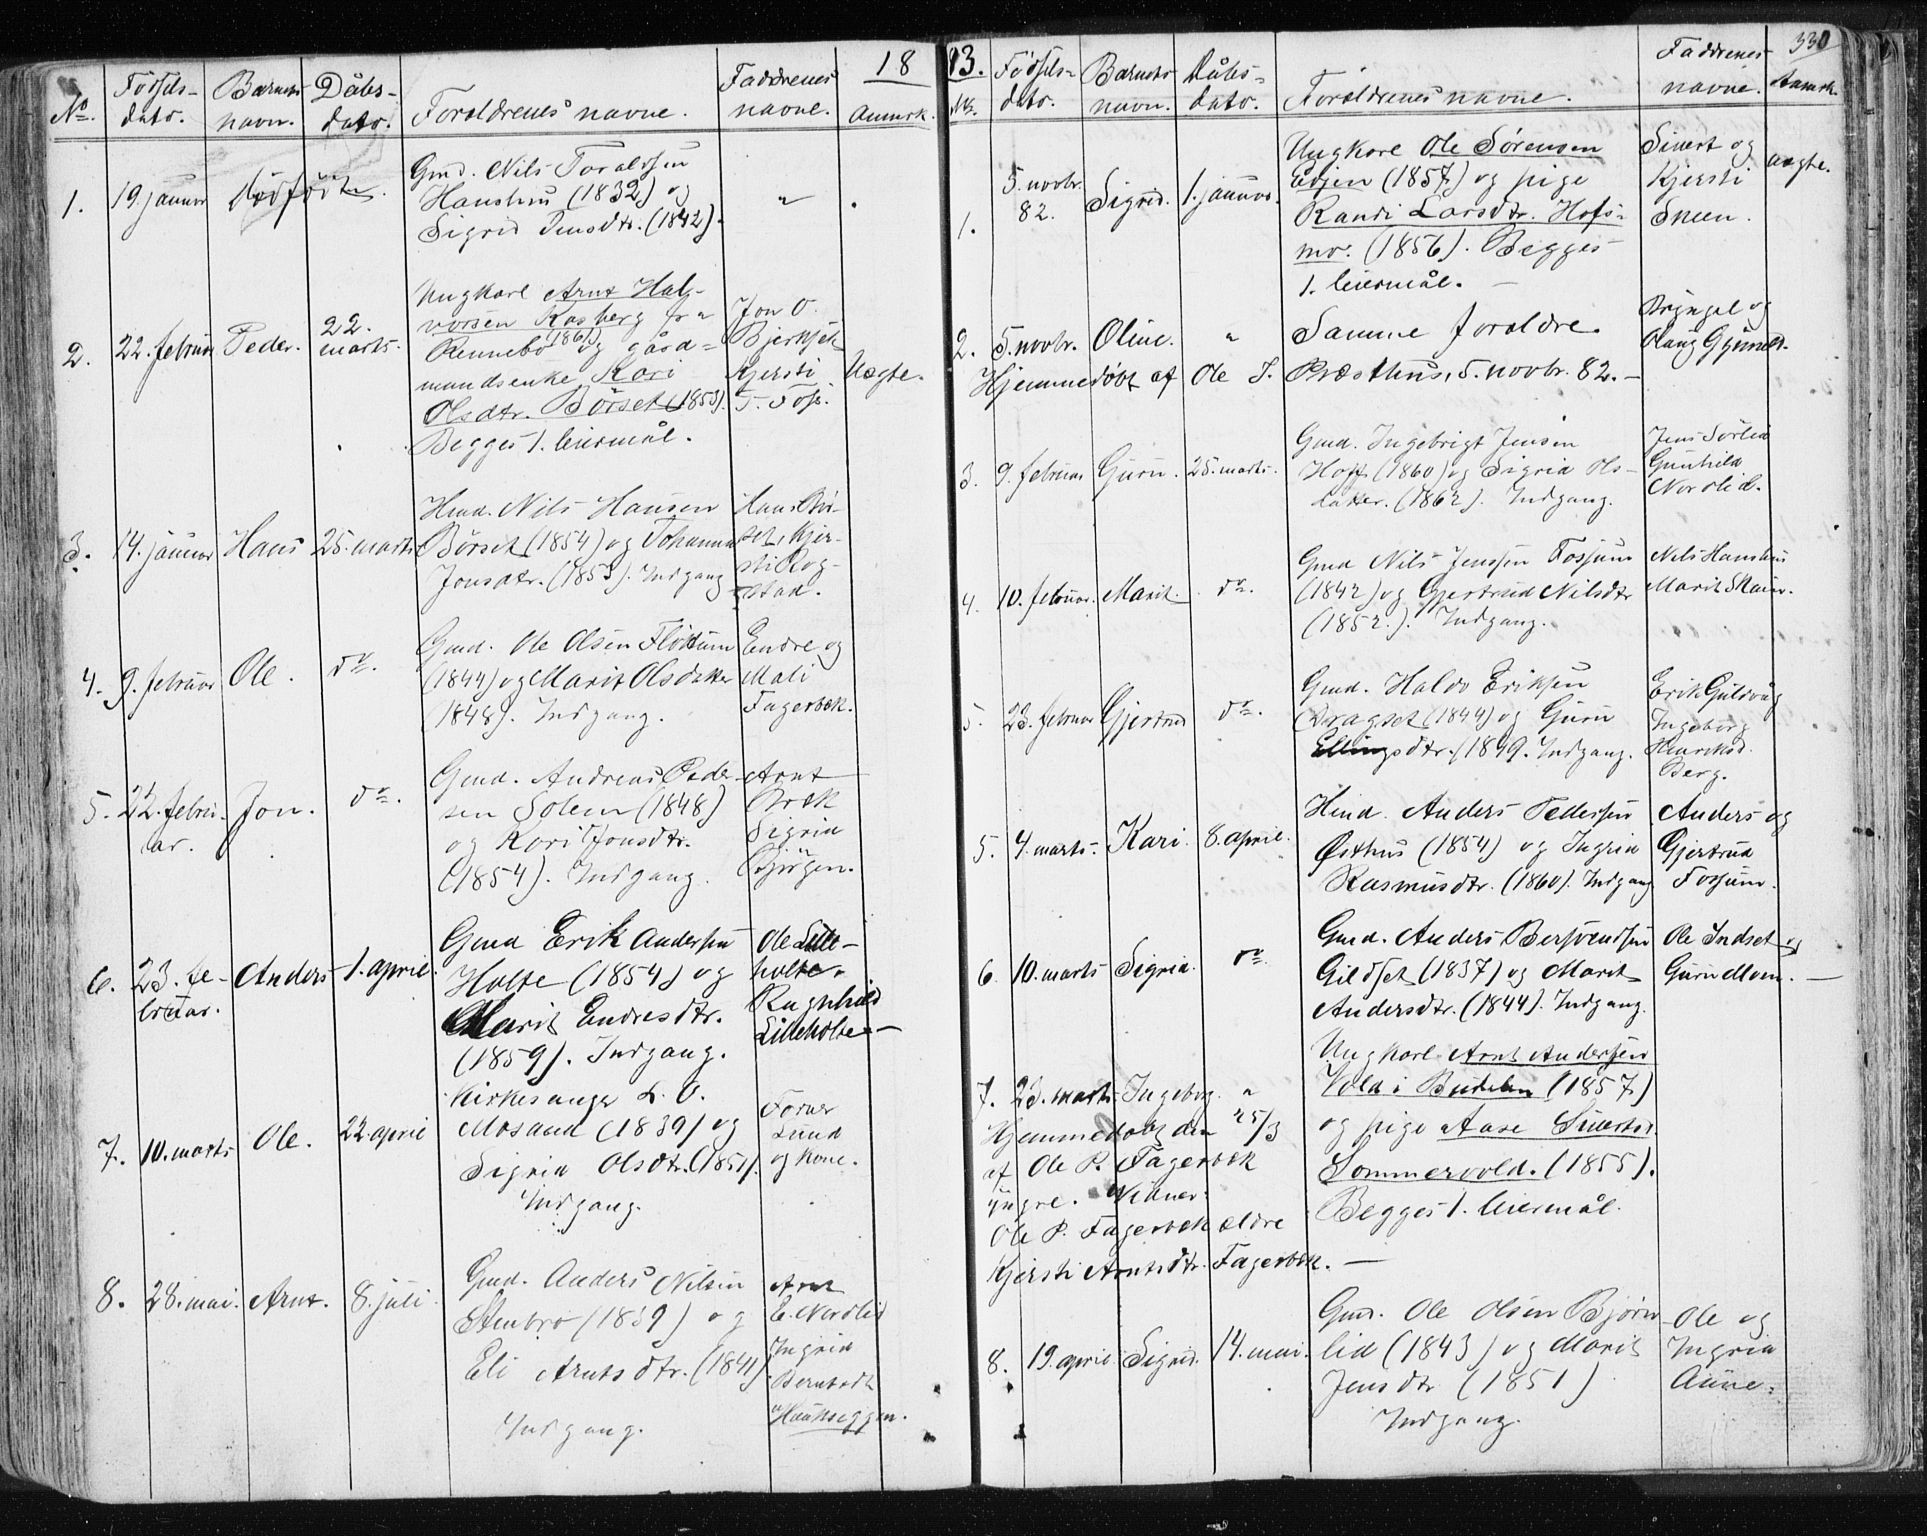 18
No. Födsels- dato. Barnets navn. Dåbs- dato. Foreldrenes navne. Faddrenes navne. Anmrk.
1. 19. januar Dødfödte. Gmd. Nils Toraldsen
Hanshus (1832) og
Sigrid Jensdtr. (1842).
2. 22. februar Peder. 22. marts. Ungkarl Arnt Hal-
vorsen Rosberg fra
Rennebo (1861) og gård-
mandsenke Kari
Olsdtr. Börset (1853).
Begges 1. leiermål.
Jon O.
Bjerkset
Kjersti
T. Foss.
Uegte.
3. 14. januar Hans 25. marts Hmd. Nils Hansen
Börset (1854) og Johanna
Jonsdtr. (1853). Indgang
Hans Bör-
set, Kjer-
sti Rog-
stad.
4. 9. februar Ole. do. Gmd. Ole Olsen Flöttum
(1844) og Marit Olsdatter
1848). Indgang.
Endre og
Mali
Fagerbek.
5. 22. febru-
ar. Jon. do. Gmd. Andreas Peder-
sen Solem (1848)
og Kari Jonsdtr.
(1854). Indgang.
Arnt
Brek
Sigrid
Bjørgen.
6. 23. fe-
bruar. Anders 1. april. Gmd Erik Andersen
Holte (1854) og
Marit Endresdtr.
(1859). Indgang.
Ole Lille-
holte.
Ragnhild
Lilleholte
7. 10. marts Ole. 22. april Kirkesanger L. O.
Mosand (1839) og
Sigrid Olsdtr. (1851).
Indgang.
Forner
Lund
og kone.
8. 28. mai. Arnt. 8. juli. Gmd. Anders Nilsen
Stenbro (1839) og
Eli Arntsdtr. (1841)
Indgang.
Arnt
E. Nordlid
Ingrid
Berntsdtr
Haukseggen.
83. 330
No. Födsels- dato. Barnets navn. Dåbs- dato. Foreldrenes navne. Faddrenes navne. Anmrk.
1. 5. novbr. 82. Sigrid. 1. januar. Ungkarl Ole Sörensen
Evjen (1857) og pige
Randi Larsdtr. Hofs-
mo. (1856). Begges
1. leiermål.
Sivert og
Kjersti
Sneen.
uegte.
2. 5. novbr. Oline. " Samme foreldre.
Hjemmedöbt af Ole J. Presthus, 5. novbr. 82.
3. 9. februar Guru. 25. marts. Gmd. Ingebrigt Jensen
Hoff (1860) og Sigrid Ols-
datter. (1862). Indgang.
Jens Sörlid
Gunhild
Nordlid.
4. 10. februar. Marit. do. Gmd Nils Jenssen Fossum
(1842) og Gjertrud Nilsdtr
(1852.). Indgang.
Nils Hanshus
Marit Skaun.
5. 23. februar Gjertrud do. Gmd. Haldo Eriksen
Dragset (1844) og Guru
Ellingsdtr. (1849. Indgang.
Erik Guldvåg
Ingeborg
Henriksd.
Berg.
5. 4. marts. Kari. 8. april. Hmd. Anders Pedersen
Østhus (1854) og Ingrid
Rasmusdtr. (1860). Indgang
Anders og
Gjertrud
Fossum.
6. 10. marts Sigrid. do. Gmd. Anders Bersvendsen
Gildset (1837) og Marit
Andersdtr. (1844). Indgang.
Ole Indset og
Guru Moen.
7. 23. marts Ingeborg. " Ungkarl Arnt Andersen
Vold i Budalen (1857)
og pige Aase Sivertsd.
Sommervold. (1855).
Begges 1. leiermål.
Hjemmedöbt den 25/3
af Ole P. Fagerbek
yngre. Vidner:
Ole P. Fagerbek eldre
Kjersti Arntsdtr. Fagerbek.
8. 19. april Sigrid. 14. mai. Gmd. Ole Olsen Bjørn-
lid (1843) og Marit
Jensdtr (1851)
Indgang.
Ole og
Ingrid
Aune.